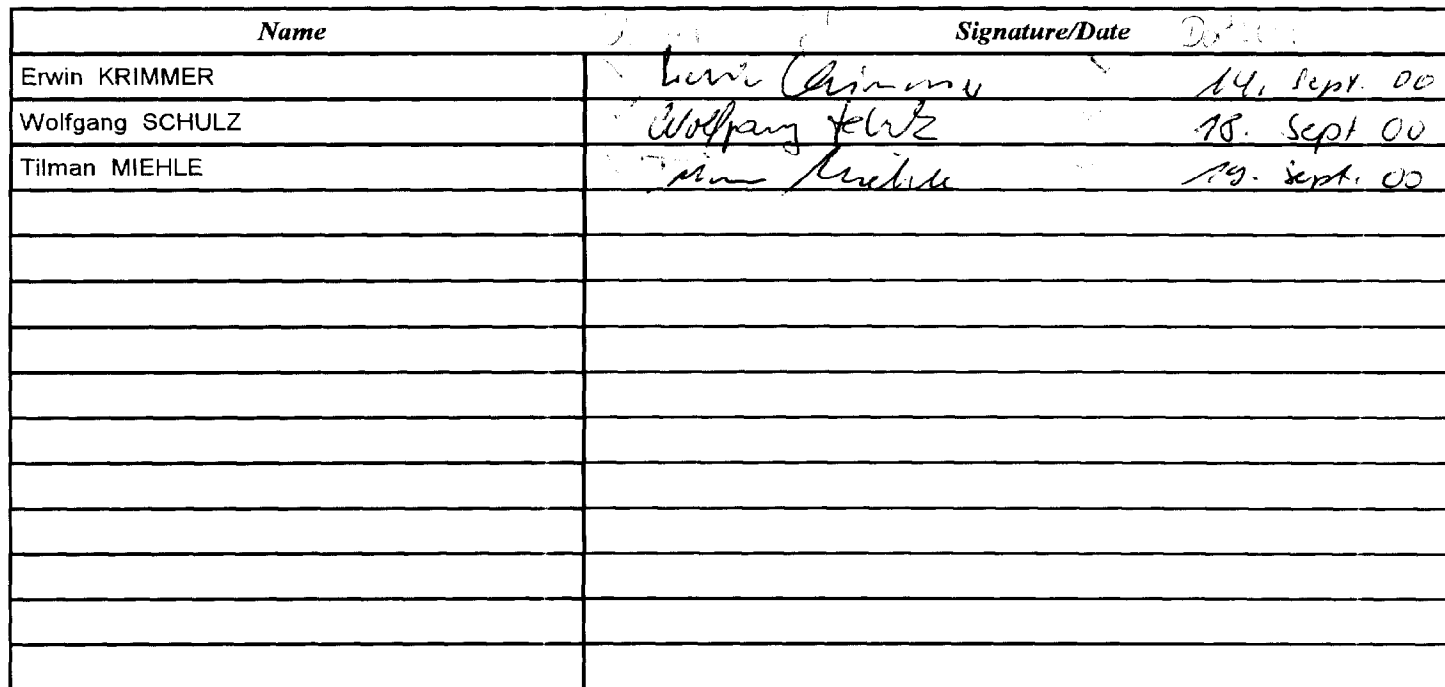 Name Signature/Date
Erwin KRIMMER Erwin Krimmer 14. Sept. 00
Wolfgang SCHULZ Wolfgang Schulz 18. Sept 00
Tilman MIEHLE Tilman Miehle 19. Sept. 00